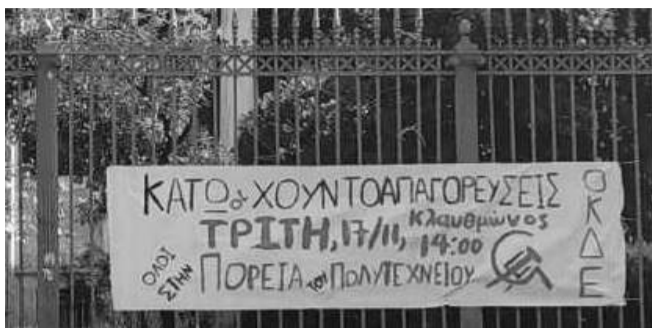 ΚΑΤΩ οι ΧΟΥΝΤΟΑΠΑΓΟΡΕΥΣΕΙΣ
ΤΡΙΤΗ, 17/11, Κλαυθμώνος 14:00
ΟΛΟΙ ΣΤΗΝ ΠΟΡΕΙΑ του ΠΟΛΥΤΕΧΝΕΙΟΥ
ΟΚΔΕ